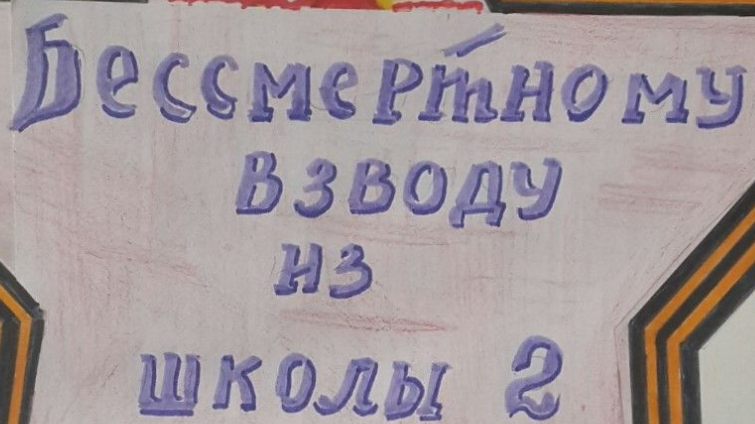 Бессмертному
взводу
из
школы 2